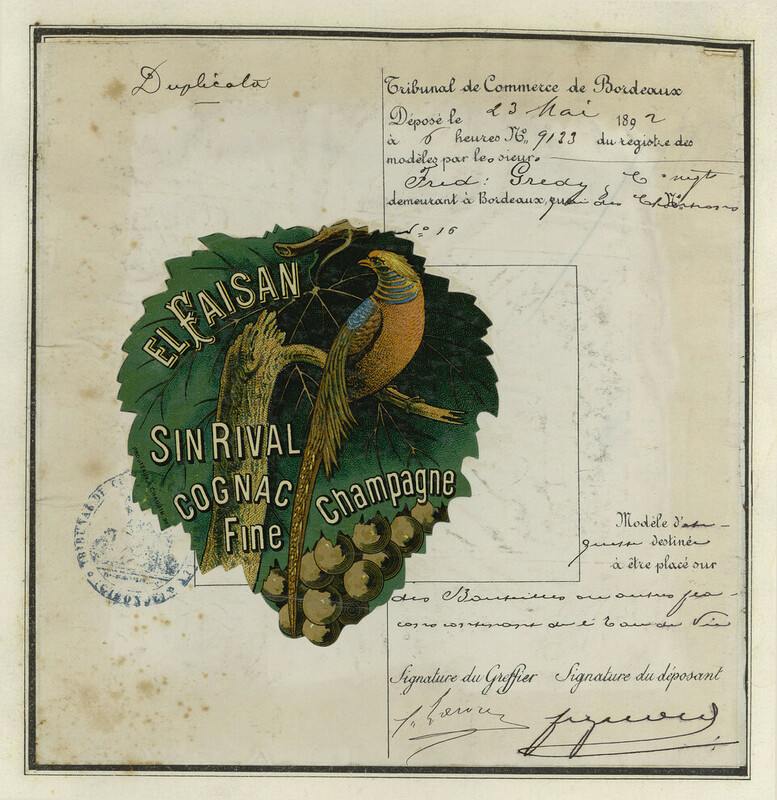 Duplicata
Tribunal de Commerce de Bordeaux
Déposé le 23 Mai 1892
à 6 heures No. 9133 du registre des
modèles par le sieur
Fred: Gredy &
demeurant à Bordeaux, quai des Chartrons
No 16
EL FAISAN
SIN RIVAL
COGNAC
Fine Champagne
Modèle
destinée
à être placé sur
des Bouteilles ou autres
contenant de l'Eau de Vie
Signature du Greffier Signature du déposant